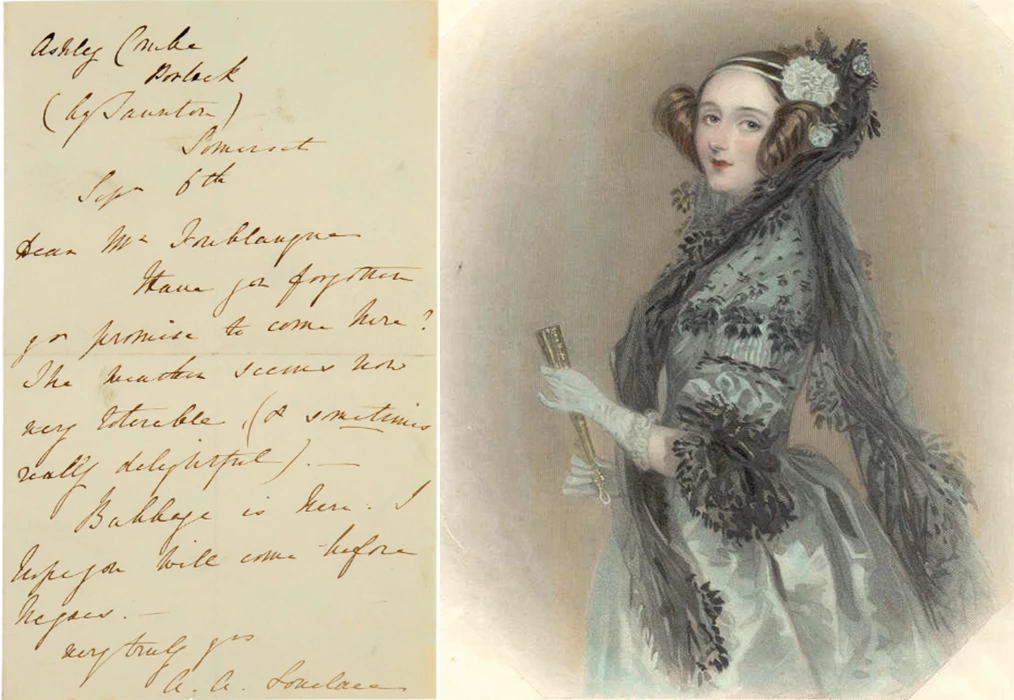 Ashley Combe
Porlock
(by Taunton)
Somerset
Sep 6th
Dear Mr Fonblanque
Have you forgotten
yr promise to come here?
The weather seems now
very tolerable, (& sometimes
really delightful). —
Babbage is here. I
hope you will come before
he goes. —
very truly yrs
A. A. Lovelace